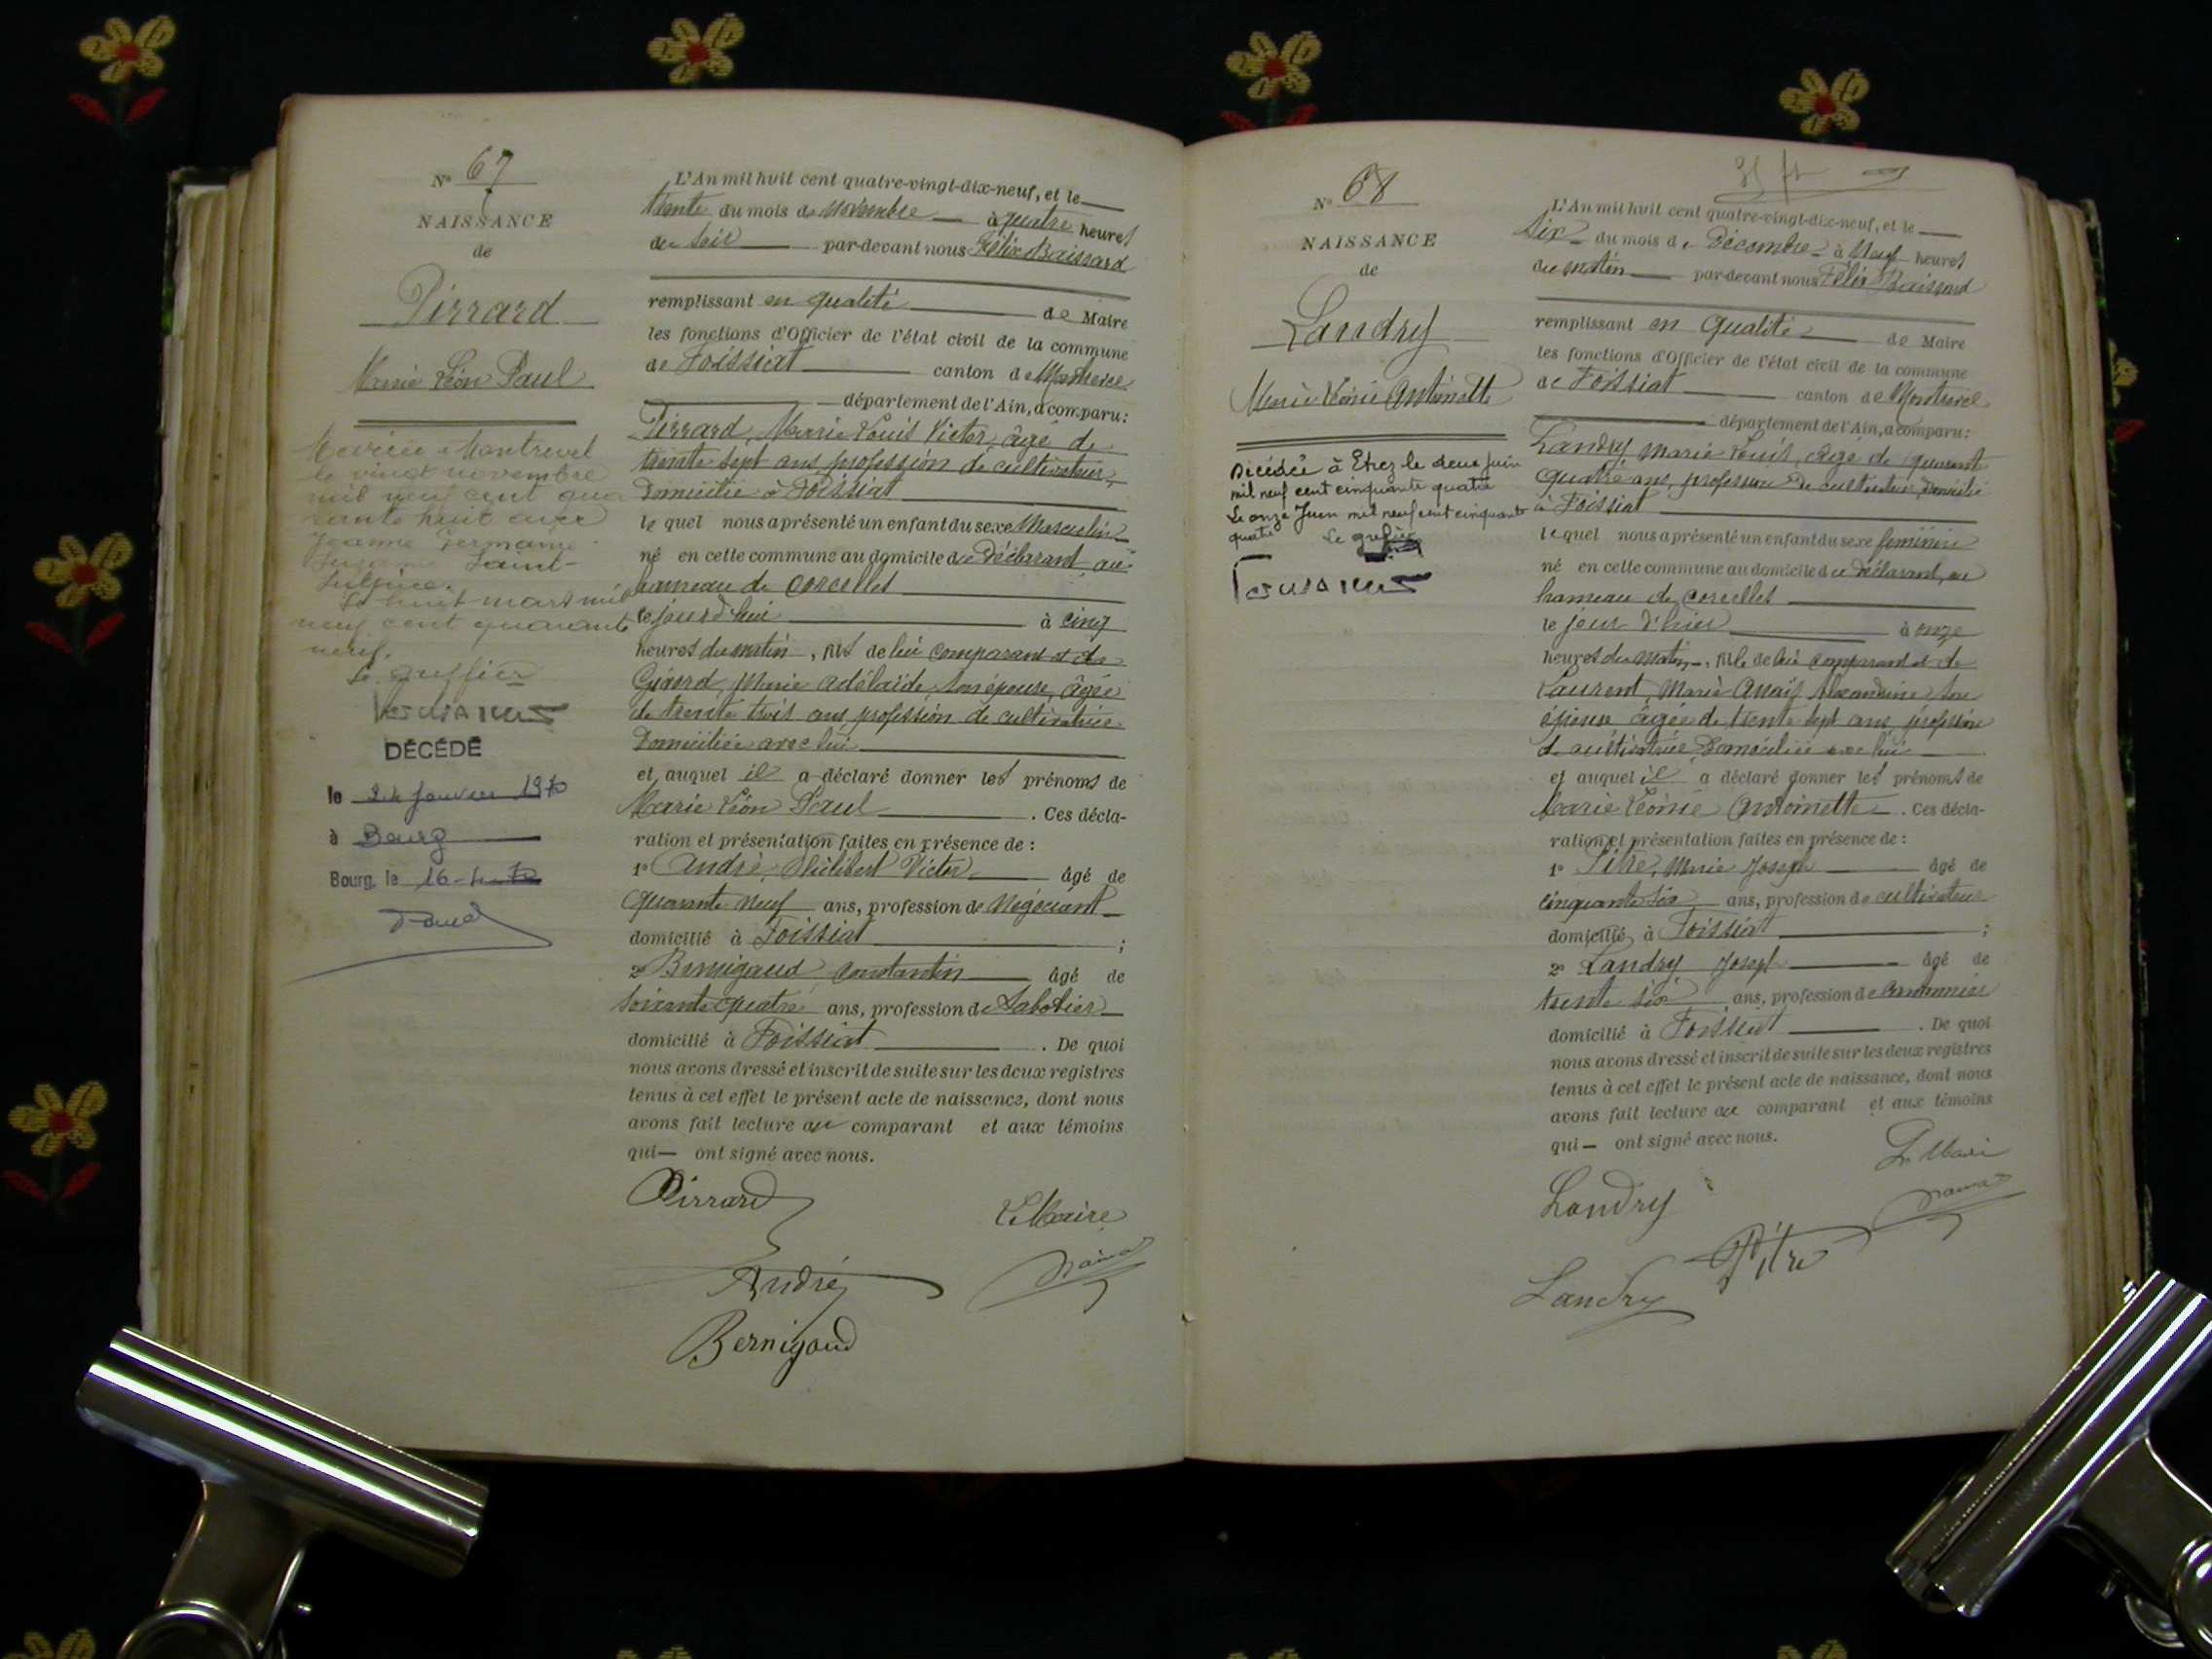 N° 67
NAISSANCE
de
Pirrard
Marie Léon Paul
Mariée à Montrevel
le vingt novembre
mil neuf cent qua
rante huit avec
Jeanne Germaine
Saint-
Sulpice.
Le huit mars mil
neuf cent quarante
neuf.
Le greffier
DÉCÉDÉ
le 24 Janvier 1970
à Bourg
Bourg, le 16-
L'An mil huit cent quatre-vingt-dix-neuf, et le
trente du mois de Novembre à quatre heures
du soir par-devant nous Félix Baissard
remplissant en qualité de Maire
les fonctions d'Officier de l'état civil de la commune
de Foissiat canton de Montrevel
département de l'Ain, a comparu:
Pirrard, Marie Louis Victor, âgé de
trente sept ans profession de cultivateur,
Domicilié à Foissiat
lequel nous a présenté un enfant du sexe Masculin
né en cette commune au domicile du Déclarant au
hameau de Corcelles
ce jourd'hui à cinq
heures du matin, fils de lui comparant et de
Girard, Marie Adélaïde, son épouse, âgée
de trente trois ans profession de cultivatrice
Domiciliée avec lui
et auquel il a déclaré donner les prénoms de
Marie Léon Paul. Ces décla-
ration et présentation faites en présence de :
1° André, Philibert Victor âgé de
quarante neuf ans, profession de Négociant
domicilié à Foissiat ;
2° Bernigaud, Constantin âgé de
soixante quatre ans, profession de Sabotier
domicilié à Foissiat. De quoi
nous avons dressé et inscrit de suite sur les deux registres
tenus à cet effet le présent acte de naissance, dont nous
avons fait lecture au comparant et aux témoins
qui — ont signé avec nous.
Pirrard
Le Maire
André
Bernigaud
N° 68
NAISSANCE
de
Landry
Marie Léonie Antoinette
Décédée à Etrez le deux juin
mil neuf cent cinquante quatre
Le onze Juin mil neuf cent cinquante
quatre Le greffier
L'An mil huit cent quatre-vingt-dix-neuf, et le
six du mois de Décembre à Neuf heures
du matin par-devant nous Félix Baissard
remplissant en qualité de Maire
les fonctions d'Officier de l'état civil de la commune
de Foissiat canton de Montrevel
département de l'Ain, a comparu:
Landry Marie Louis, âgé de quarante
quatre ans, profession de cultivateur, Domicilié
à Foissiat
lequel nous a présenté un enfant du sexe féminin
né en cette commune au domicile du Déclarant, au
hameau de Corcelles
le jour d'hier à onze
heures du matin, fille de lui comparant et de
Laurent, Marie Anaïs Alexandrine son
épouse âgée de trente sept ans profession
de cultivatrice Domiciliée avec lui
et auquel il a déclaré donner les prénoms de
Marie Léonie Antoinette. Ces décla-
ration et présentation faites en présence de :
1° Pitre, Marie Joseph âgé de
cinquante six ans, profession de cultivateur
domicilié à Foissiat ;
2° Landry Joseph âgé de
trente six ans, profession de Cantonnier
domicilié à Foissiat. De quoi
nous avons dressé et inscrit de suite sur les deux registres
tenus à cet effet le présent acte de naissance, dont nous
avons fait lecture au comparant et aux témoins
qui — ont signé avec nous.
Le Maire
Landry
Pitre
Landry